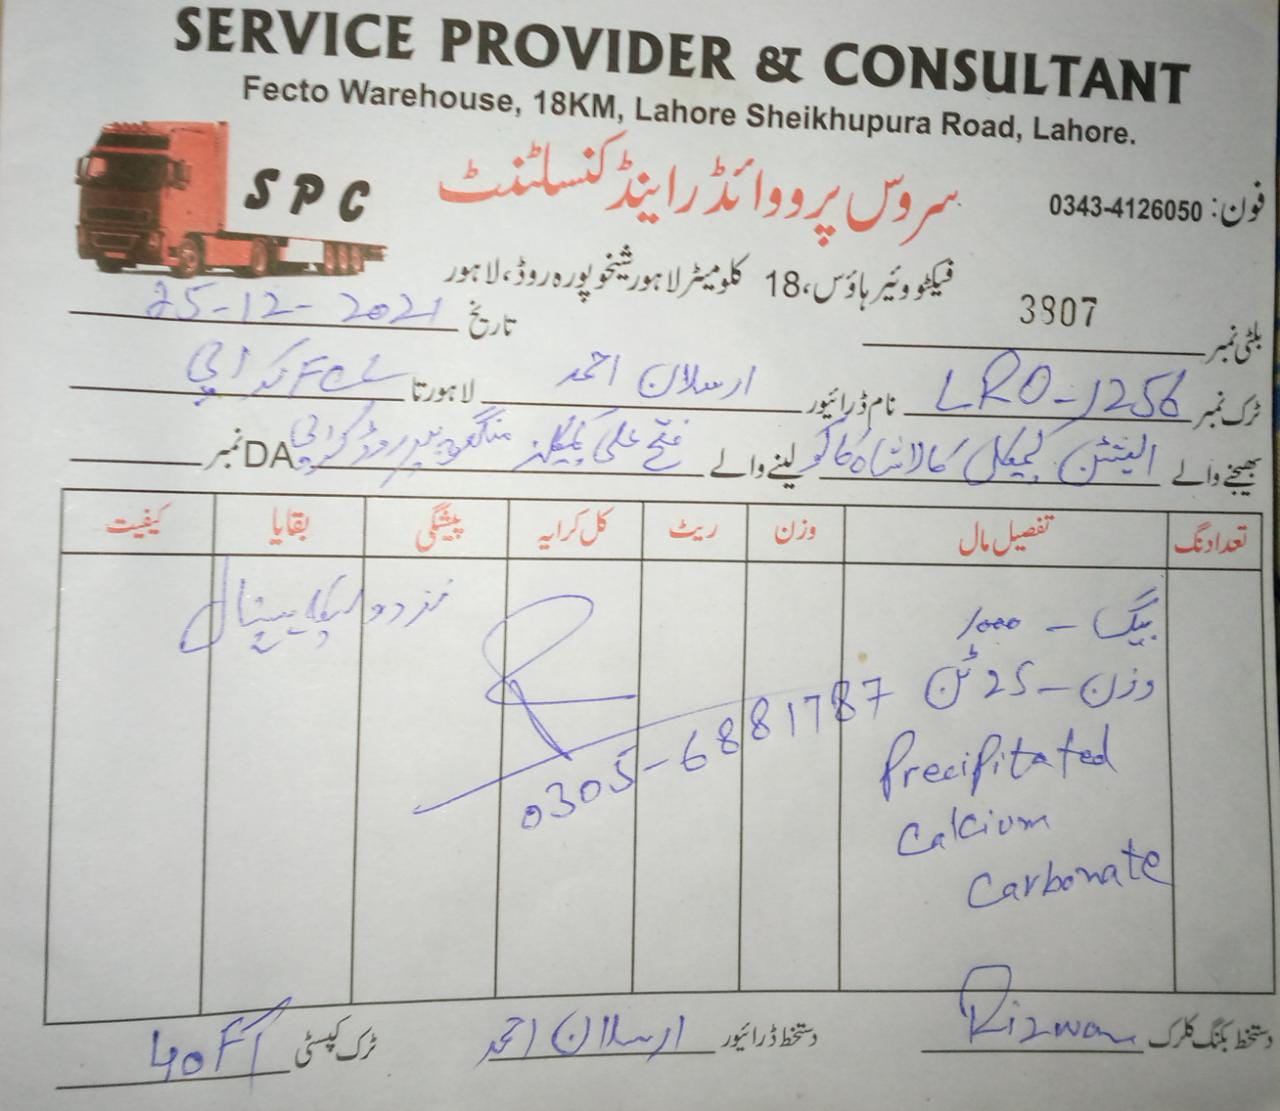 SERVICE PROVIDER & CONSULTANT
Fecto Warehouse, 18KM, Lahore Sheikhupura Road, Lahore.
SPC
سروس پرووائڈر اینڈ کنسلٹنٹ
فون: 0343-4126050
فیکٹو ویئر ہاؤس، 18 کلومیٹر لاہور شیخوپورہ روڈ، لاہور
بلٹی نمبر 3807
تاریخ 25-12-2021
ٹرک نمبر LRO-1256 نام ڈرائیور ارسلان احمد لاہور تا کراچی FCL
بھیجنے والے کیمیکل کالا شاہ کاکو لینے والے فتح علی کیمیکلز منگھوپیر روڈ کراچی DA نمبر
تعداد نگ تفصیل مال وزن ریٹ کل کرایہ پیشگی بقایا کیفیت
بیگ - 1000
نزد
وزن - 25 ٹن
0305-6881787
Precipitated
Calcium
Carbonate
دستخط بکنگ کلرک Rizwan دستخط ڈرائیور ارسلان احمد ٹرک کپسٹی 40FT